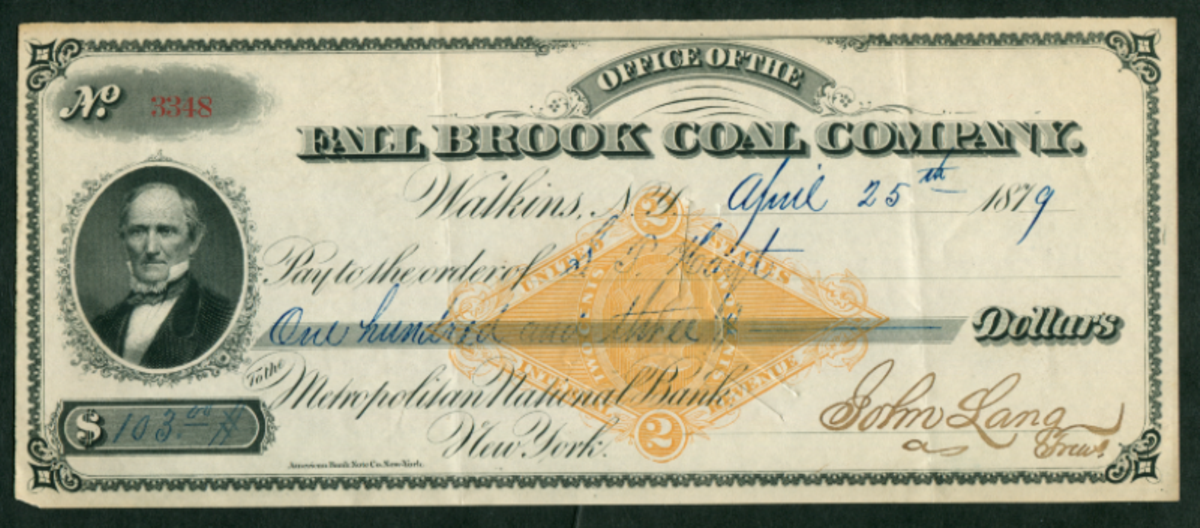 OFFICE OF THE
No. 3348
FALL BROOK COAL COMPANY.
Watkins, N.Y. April 25th 1879
Pay to the order of S. T. Hayt
One hundred and three Dollars
To the
Metropolitan National Bank
$ 103.00
New York.
John Lang
as Treas.
American Bank Note Co. New-York.
2
UNITED STATES
INTERNAL REVENUE
2